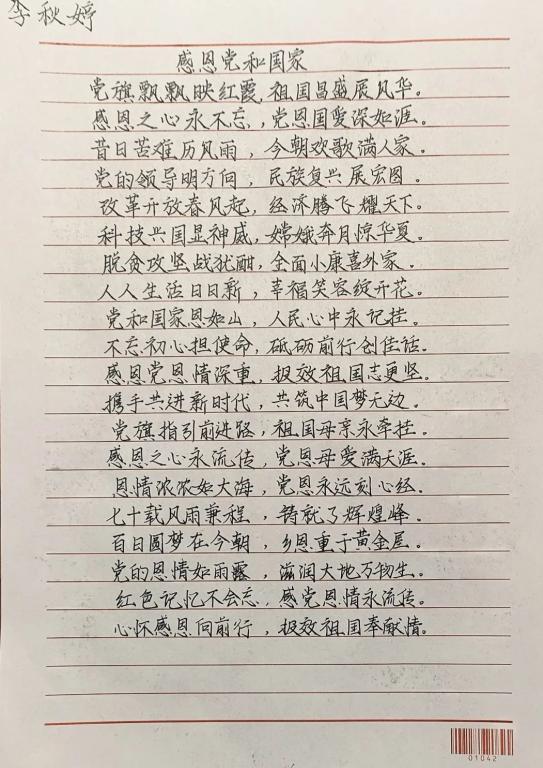 李秋婷
感恩党和国家
党旗飘飘映红霞,祖国昌盛展风华。
感恩之心永不忘,党恩国爱深如涯。
昔日苦难历风雨,今朝欢歌满人家。
党的领导明方向,民族复兴展宏图。
改革开放春风起,经济腾飞耀天下。
科技兴国显神威,嫦娥奔月惊华夏。
脱贫攻坚战犹酣,全面小康喜外家。
人人生活日日新,幸福笑容绽开花。
党和国家恩如山,人民心中永记挂。
不忘初心担使命,砥砺前行创佳话。
感恩党恩情深重,报效祖国志更坚。
携手共进新时代,共筑中国梦无边。
党旗指引前进路,祖国母亲永牵挂。
感恩之心永流传,党恩母爱满天涯。
恩情浓浓如大海,党恩永远刻心经。
七十载风雨兼程,铸就了辉煌峰。
百日圆梦在今朝,乡恩重于黄金屋。
党的恩情如雨露,滋润大地万物生。
红色记忆不会忘,感党恩情永流传。
心怀感恩向前行,报效祖国奉献情。
01042